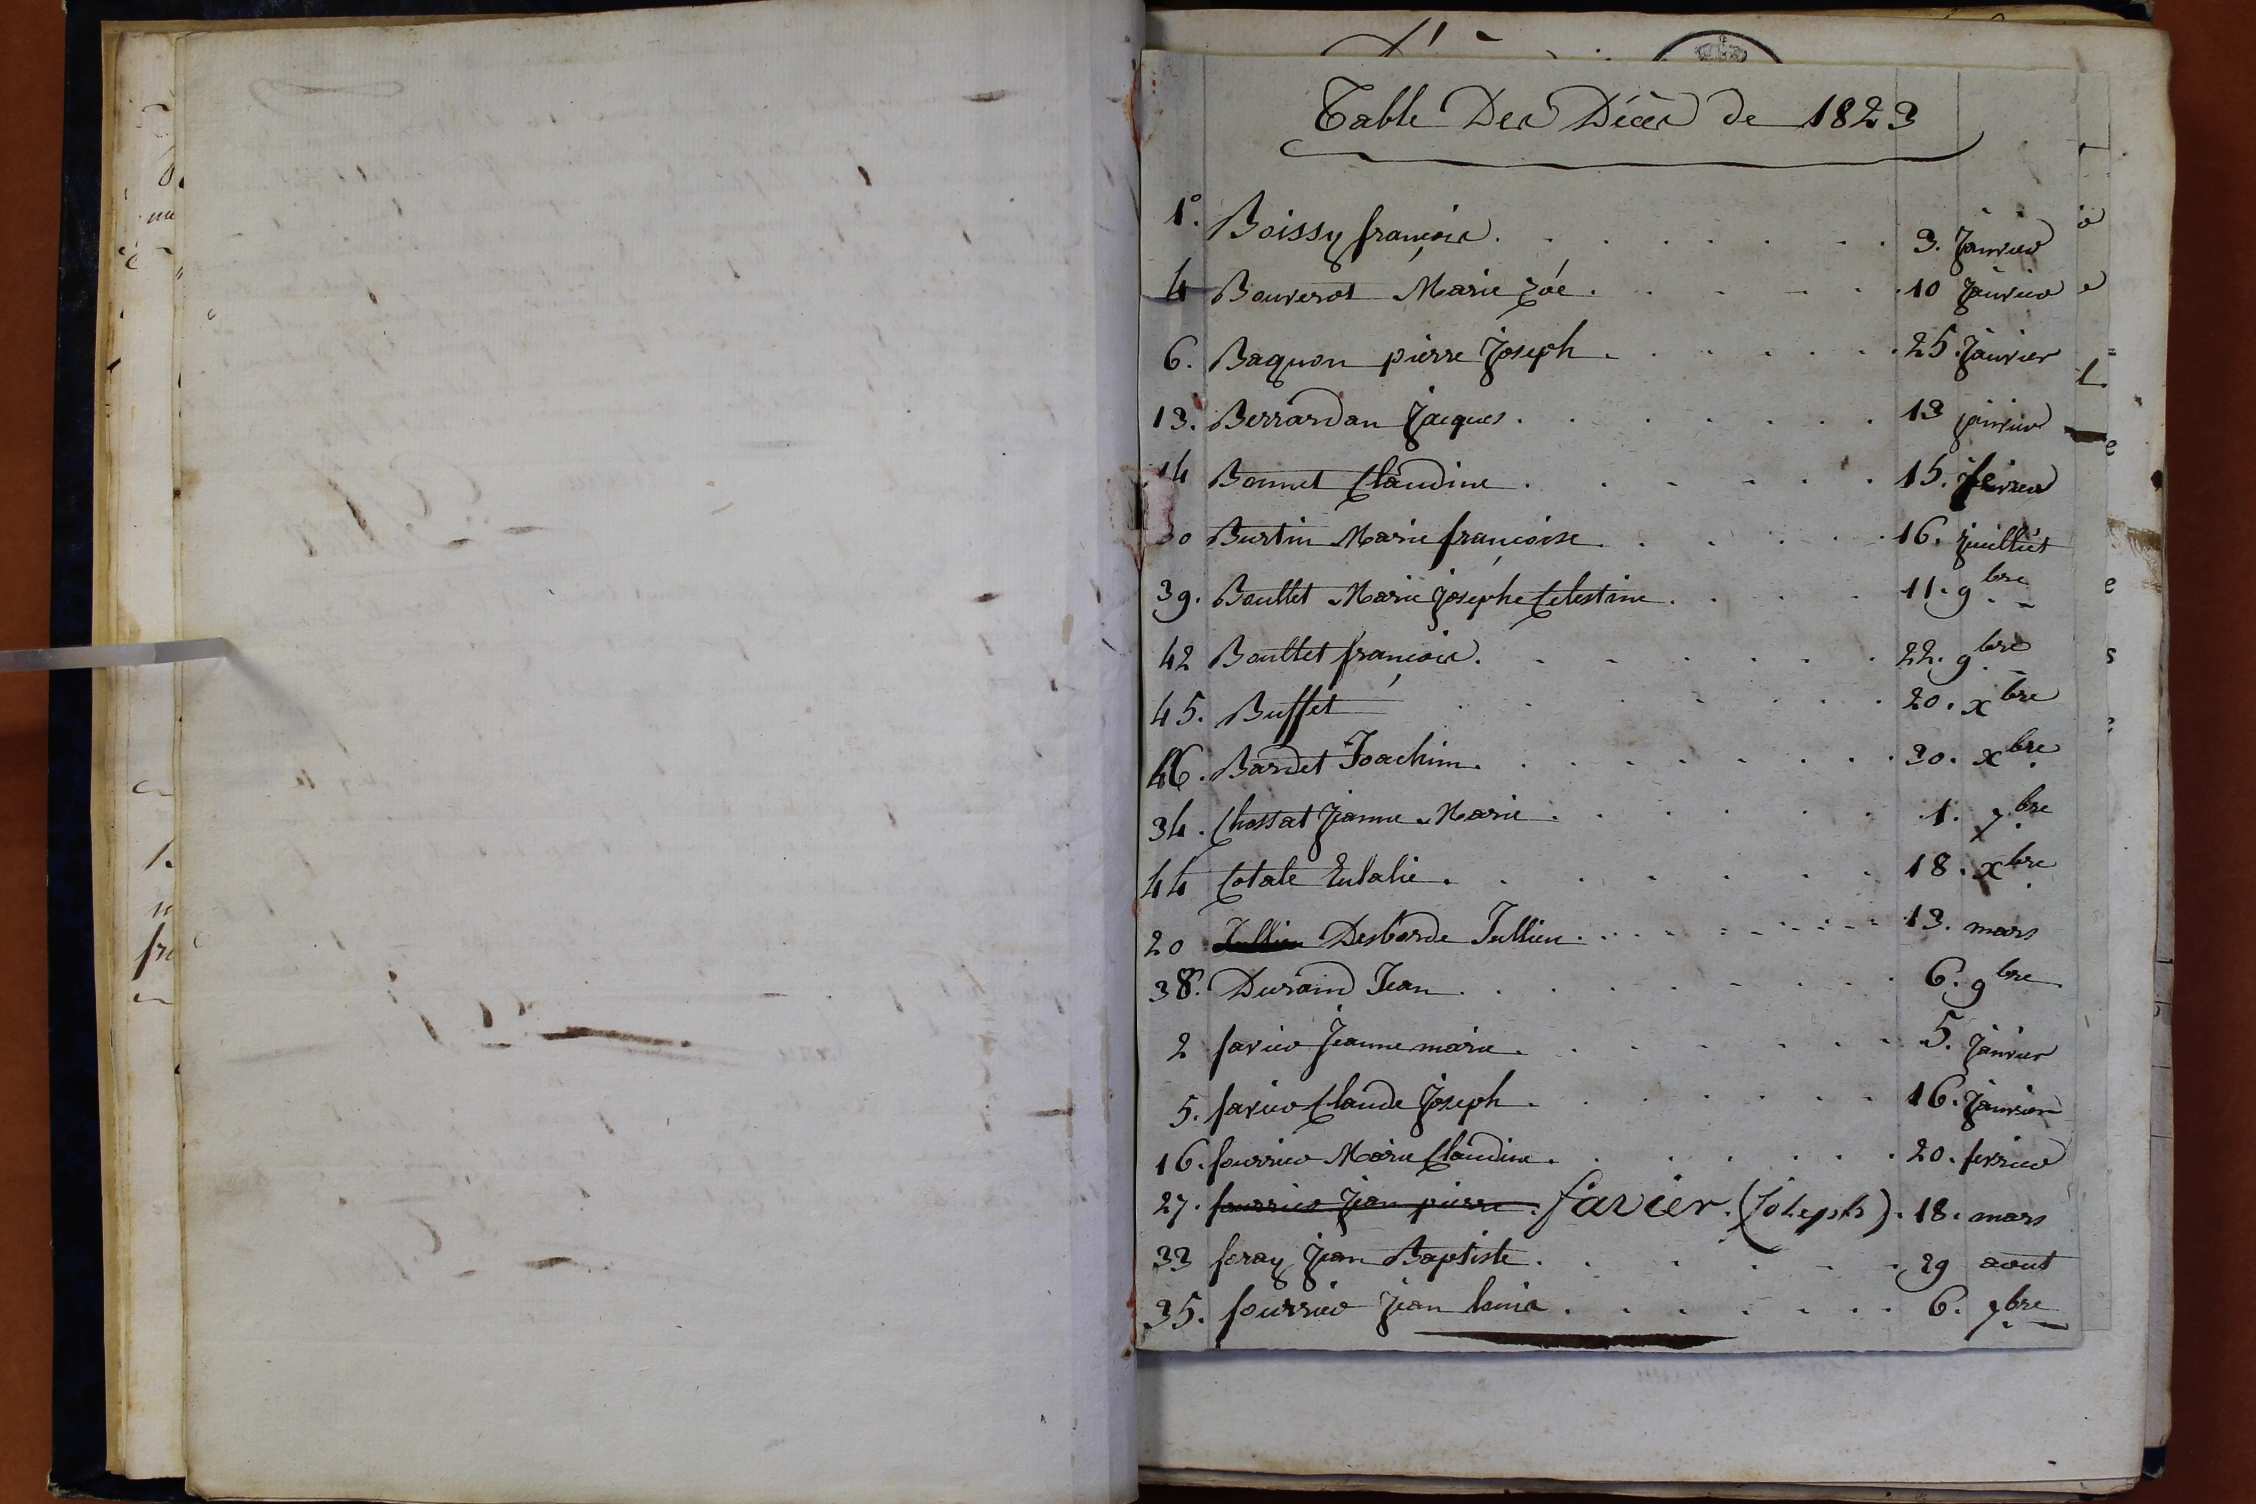 Table Des Décès de 1823
1º. Boissy françois . . . . . . . 3. Janvier
4 Bouverot Marie Zoé . . . . . 10 Janvier
6. Baquon pierre Joseph . . . . . . 25. Janvier
13. Berrardan Jacques . . . . . . . 13 janvier
14 Bonnet Claudine . . . . . . 15. fevrier
30 Burtin Marie françoise . . . . . 16. Juilliet
39. Boullet Marie Josephe Celestine . . . . 11. 9bre
42 Boullet françois . . . . . . . 22. 9bre
45. Buffet . . . . . . . 20. xbre
46. Bardet Joachim . . . . . . . . 30. xbre
34. Chossat Jeanne Marie . . . . . . 1. 7bre
44 Cotale Eulalie . . . . . . . 18. xbre
20 Jullien Desborde Jullien . . . . . . . . 13. mars
38. Durand Jean . . . . . . . . 6. 9bre
2 favier Jeanne marie . . . . . . . 5. Janvier
5. favier Claude Joseph . . . . . . . 16. Janvier
16. fourrier Marie Claudine . . . . . . . 20. fevrier
27. fourrier Jean pierre . favier. (Joseph) . 18. mars
33 feray Jean Baptiste . . . . . . 29 aout
35. fourrier Jean louis . . . . . . 6. 7bre